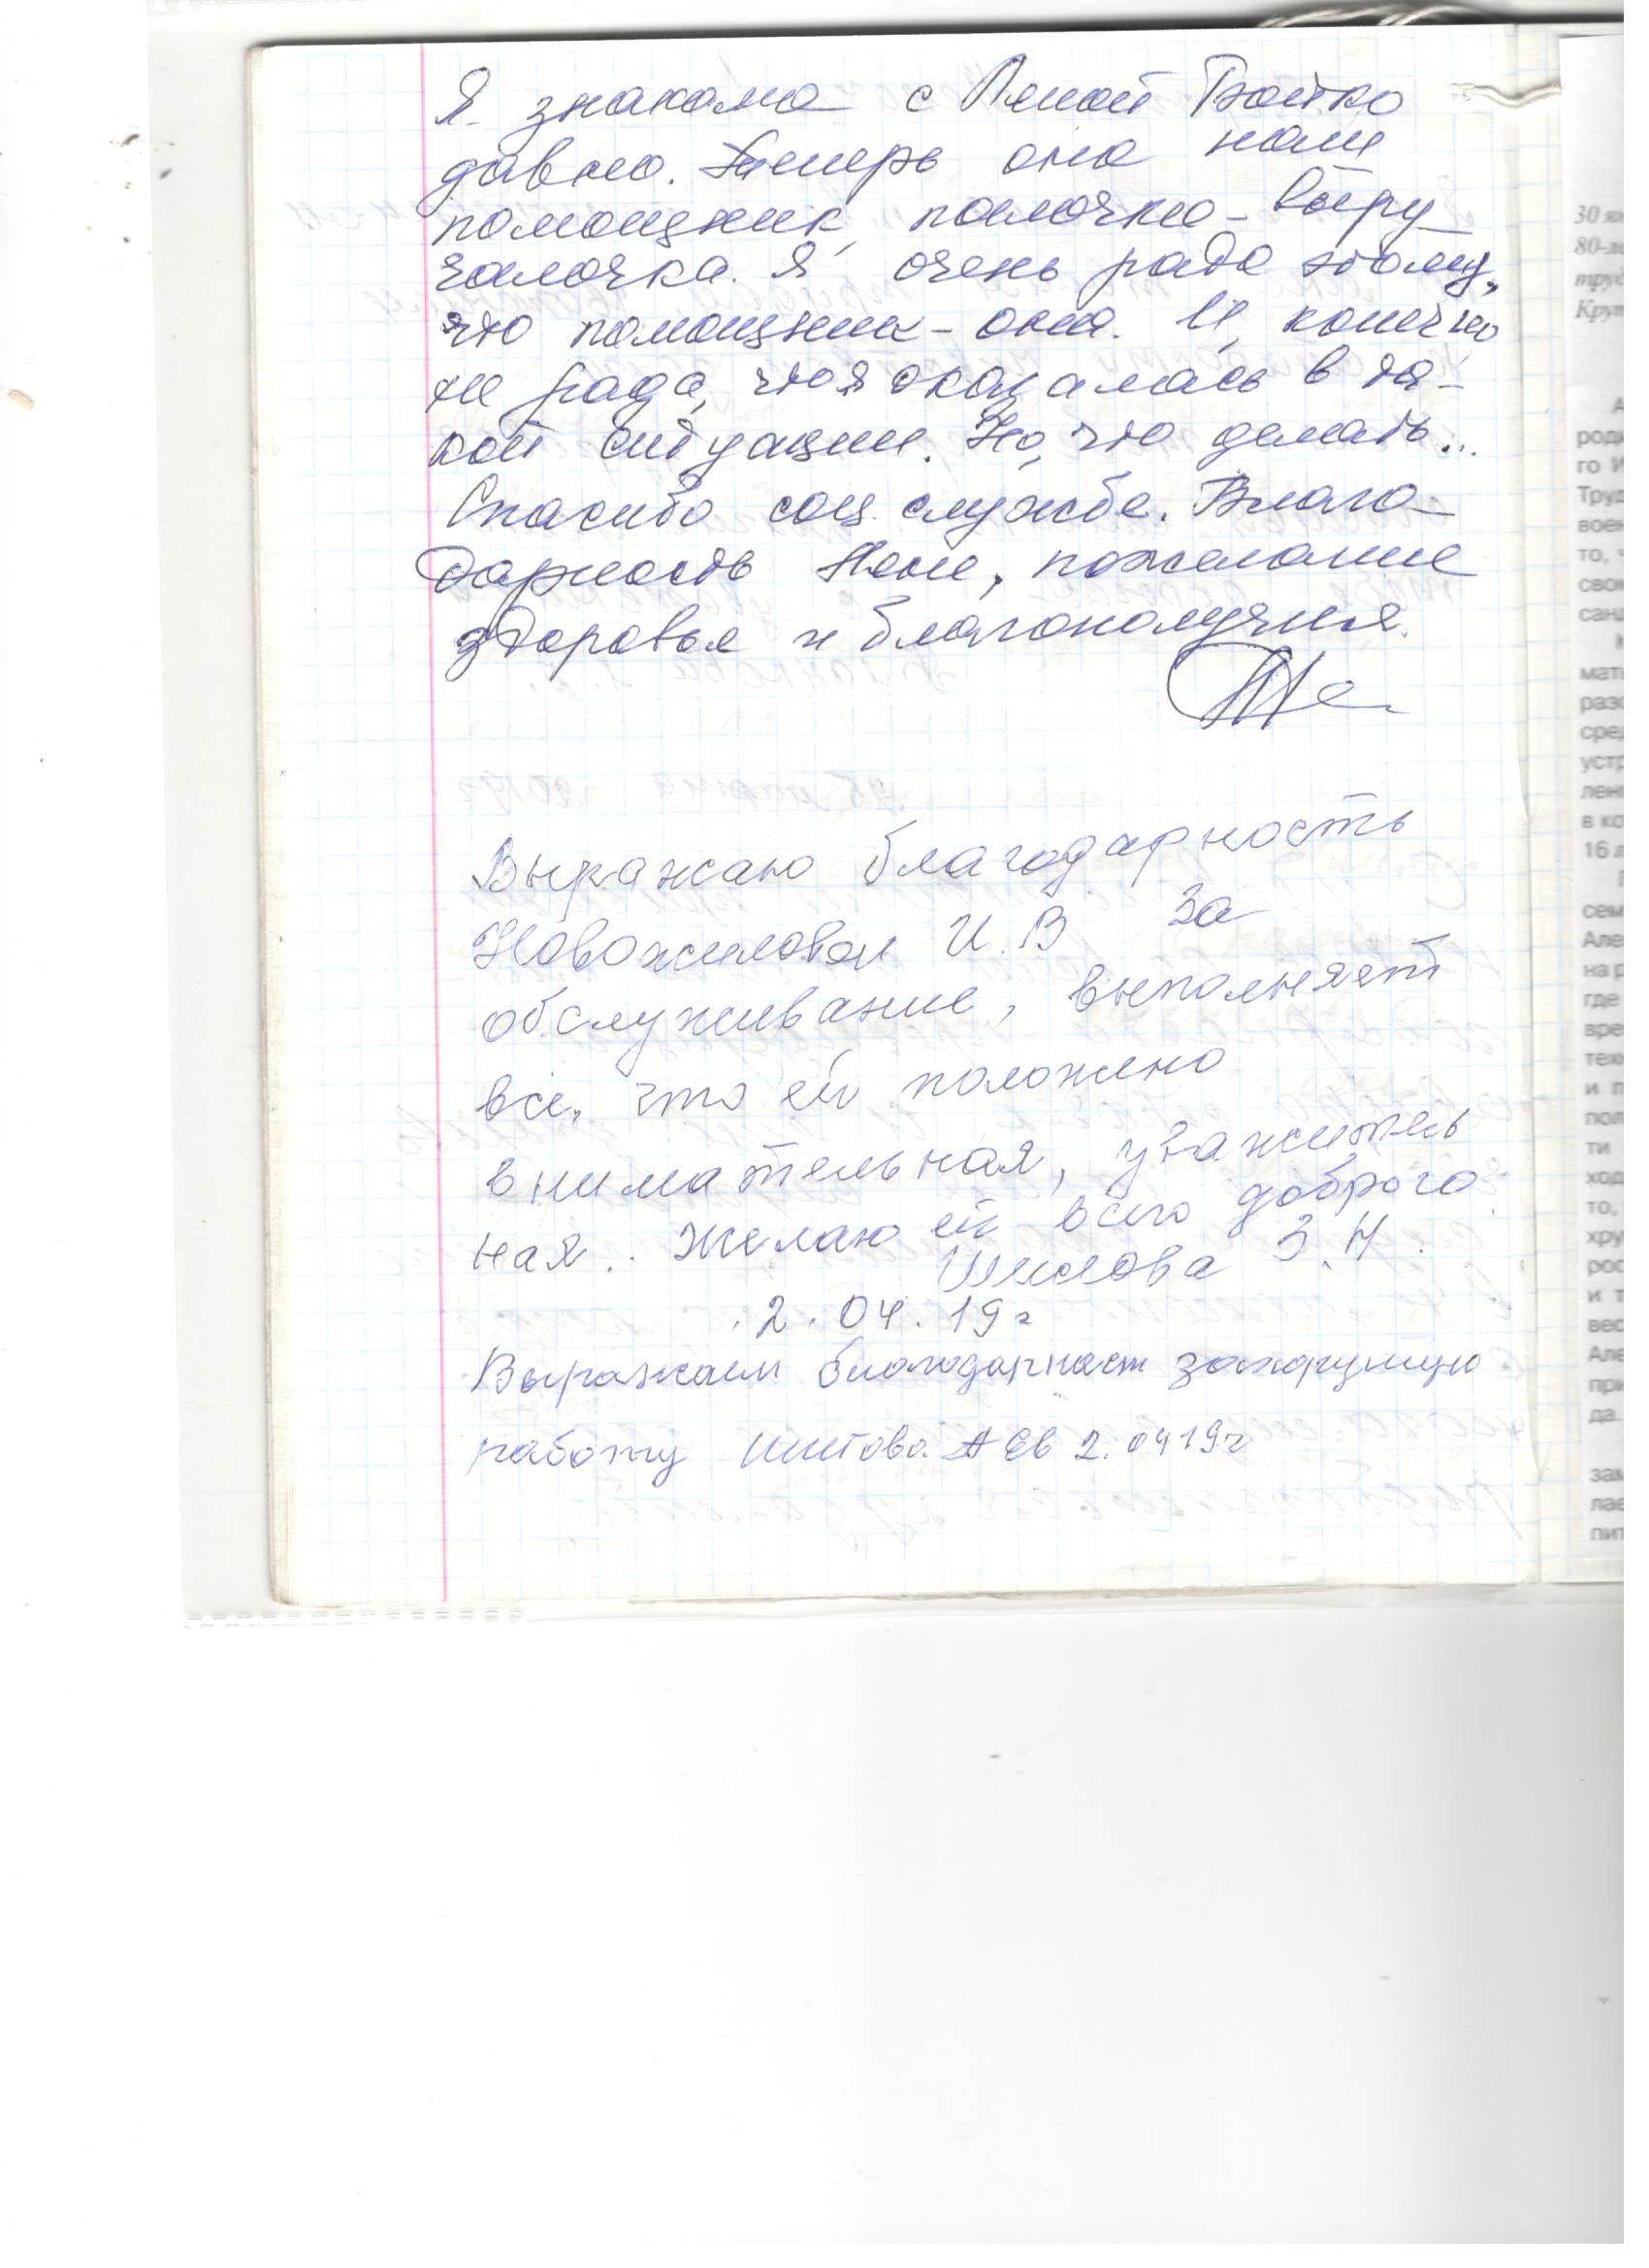 Я знакома с Леной Бойко
давно. Теперь она наш
помощник, палочка-выру
чалочка. Я очень рада этому,
что помощник - она. И, конечно
не рада, что я оказалась в та-
кой ситуации. Но, что делать...
Спасибо соц. службе. Благо-
дарность Лене, пожелание
здоровья и благополучия.
Выражаю благодарность
Новожиловой И.В за
обслуживание, выполняет
все, что ей положено
внимательная, уважитель
ная. Желаю ей всего доброго.
Шилова З.Н.
2.04.19г
Выражаем благодарност захорушую
работу 2.0419г
30
80-
труд
Крут
роди
го И
Труд
воен
то,
свои
мат
разо
сред
устр
лен
в ко
16 л
сем
Але
на р
где
вре
тех
и п
пол
ти
ход
то,
хру
рос
и т
вес
Але
при
да.
зам
лае
пит